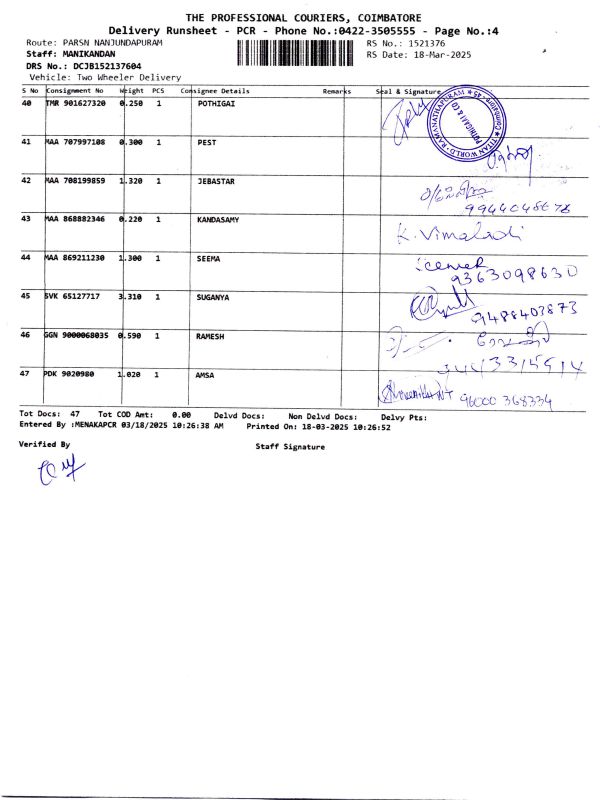 THE PROFESSIONAL COURIERS, COIMBATORE
Delivery Runsheet - PCR - Phone No.:0422-3505555 - Page No.:4
Route: PARSN NANJUNDAPURAM RS No.: 1521376
Staff: MANIKANDAN RS Date: 18-Mar-2025
DRS No.: DCJB152137604
Vehicle: Two Wheeler Delivery
S No Consignment No Weight PCS Consignee Details Remarks Seal & Signature
40 TMR 901627320 0.250 1 POTHIGAI
TITAN WORLD - RAMANATHAPURAM Coimbatore - 45
POTHIGAI & CO
41 MAA 707997108 0.300 1 PEST
42 MAA 708199859 1.320 1 JEBASTAR
9944048678
43 MAA 868882346 0.220 1 KANDASAMY K. Vimaladi
44 MAA 869211230 1.300 1 SEEMA
9363098630
45 SVK 65127717 3.310 1 SUGANYA
9488403873
46 GGN 9000068035 0.590 1 RAMESH
47 PDK 9020980 1.020 1 AMSA
96000 368334
Tot Docs: 47 Tot COD Amt: 0.00 Delvd Docs: Non Delvd Docs: Delvy Pts:
Entered By :MENAKAPCR 03/18/2025 10:26:38 AM Printed On: 18-03-2025 10:26:52
Verified By Staff Signature